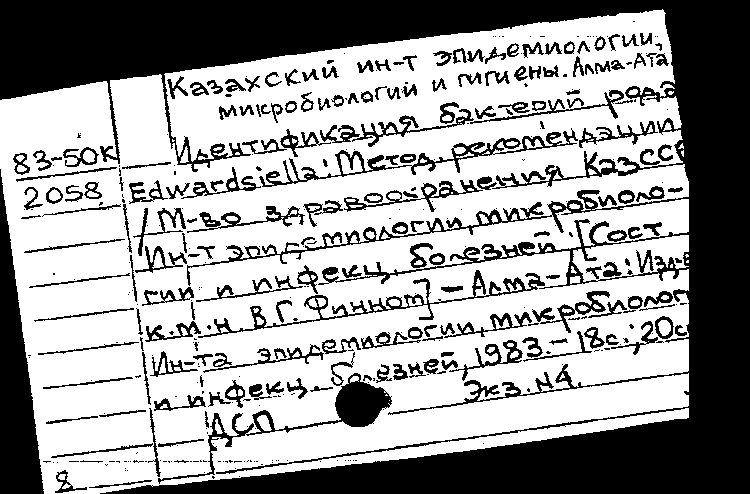 Казахский ин-т эпидемиологии,
микробиологий и гигиены. Алма-Ата.
Идентификация бактерий рода
83-50К
Edwardsiella: Метод. рекомендации
2058
/М-во здравоохранения КазССР
Ин-т эпидемиологии, микробиоло-
гии и инфекц. болезней; [Сост.
к.м.н. В.Г. Финнот] - Алма-Ата: Изд-в
Ин-та эпидемиологии, микробиолог
и инфекц. болезней, 1983.- 18с.; 20с
ДСП. Экз. N4.
8